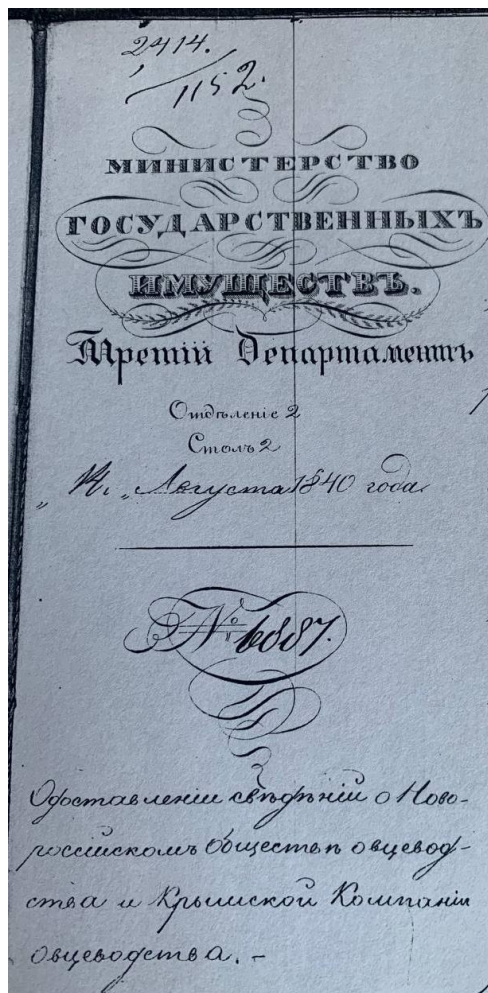 2414.
1152.
МИНИСТЕРСТВО
ГОСУДАРСТВЕННЫХЪ
ИМУЩЕСТВЪ.
Третій Департаментъ
Отдѣленіе 2
Столъ 2
Августа 1840 года.
№ 6887.
О доставленіи свѣдѣній о Ново-
россійскомъ обществѣ овцевод-
ства и Крымской Компаніи
овцеводства. –